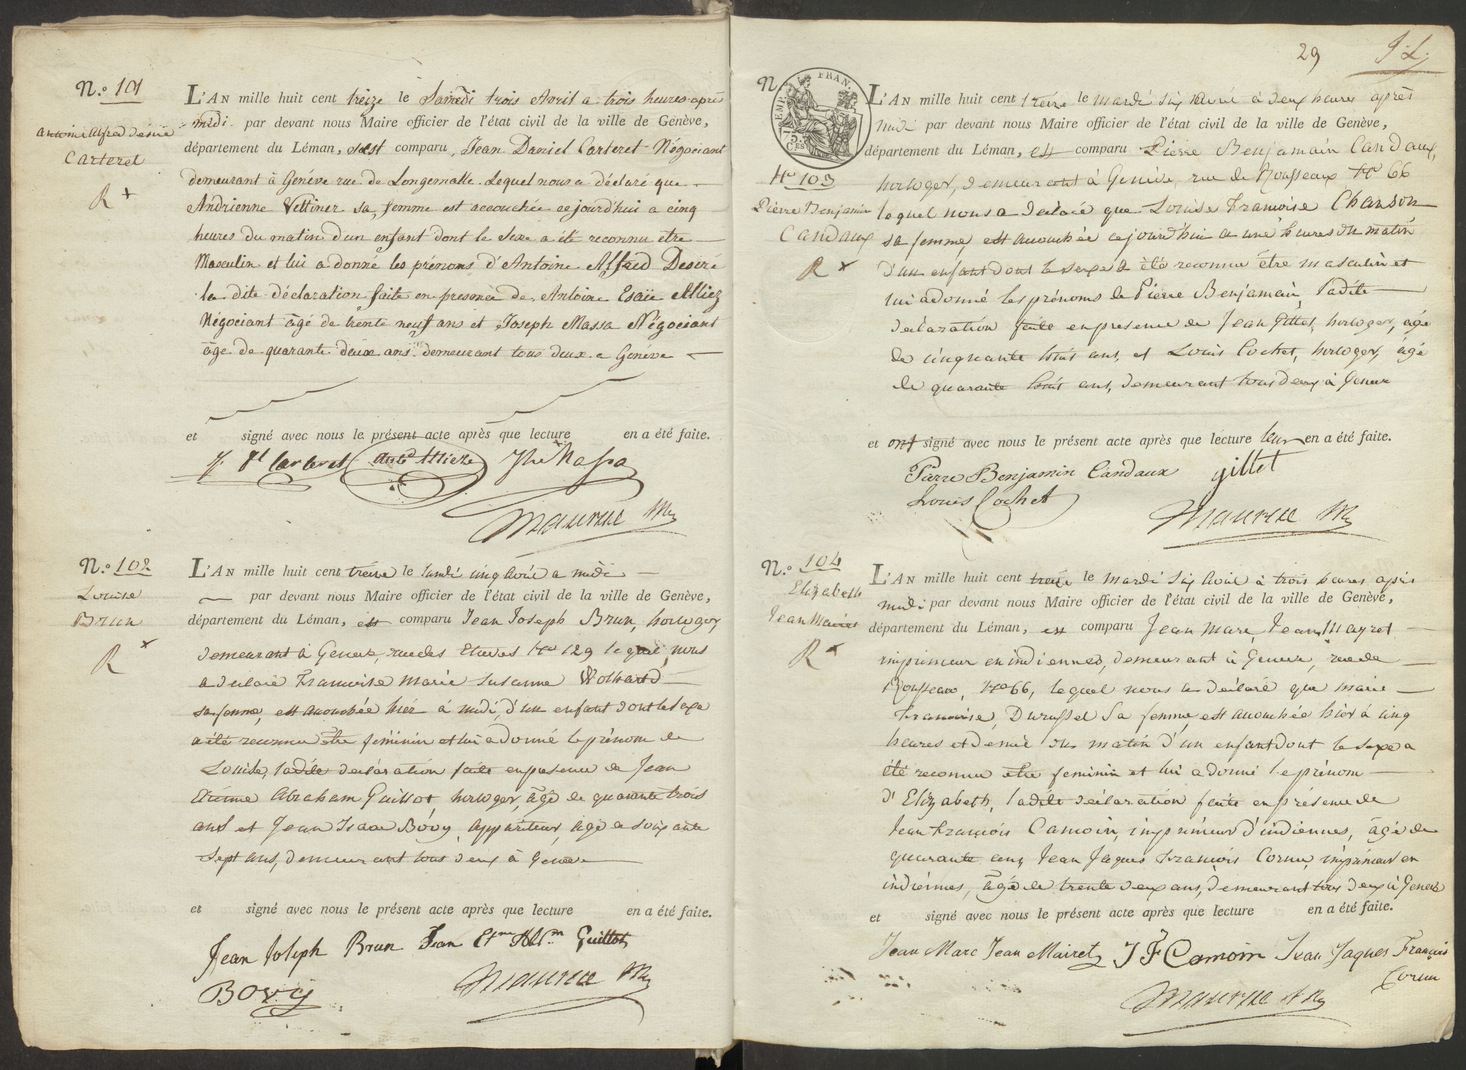 N.o 101
Antoine Alfred Desiré
Carteret
R +
L'AN mille huit cent treize le Samedi trois Avril a trois heures après
midi par devant nous Maire officier de l'état civil de la ville de Genève,
département du Léman, est comparu, Jean Daniel Carteret Négociant
demeurant à Genève rue de Longemalle. Lequel nous a déclaré que
Andrienne Vettiner sa femme est accouchée cejourdhui a cinq
heures du matin d'un enfant dont le Sexe a été reconnu etre
Masculin et lui a donné les prénoms d'Antoine Alfred Desiré
la dite déclaration faite en presence de Antoine Esaïe Alliez
Négociant âgé de trente neuf ans et Joseph Massa Négociant
âge de quarante deux ans demeurant tous deux a Genève
et signé avec nous le présent acte après que lecture en a été faite.
J. Dl Carteret Ant.e Alliez Jh Massa
Maurice
N.o 102
Louise
Brun
R x
L'AN mille huit cent treize le lundi cinq Avril a midi
par devant nous Maire officier de l'état civil de la ville de Genève,
département du Léman, est comparu Jean Joseph Brun, horloger
demeurant à Geneve, rue des Etuves No 129 lequel nous
a declaré Francoise Marie Susanne
sa femme, est accouchée hier à midi, d'un enfant dont le sexe
a été reconnu être féminin et lui a donné le prénom de
Louise, ladite déclaration faite en presence de Jean
Etienne Abraham Guillot, horloger, âgé de quarante trois
ans et Jean Isaac Bovy, appariteur, âgé de soixante
sept ans, demeurant tous deux à Geneve
et signé avec nous le présent acte après que lecture en a été faite.
Jean Joseph Brun Jean Etne Abm Guillot
Bovy Maurice
29
N
No 103
Pierre Benjamin
Candaux
R x
L'AN mille huit cent treize le mardi six Avril à deux heures après
midi par devant nous Maire officier de l'état civil de la ville de Genève,
département du Léman, est comparu Pierre Benjamain Candaux,
horloger, demeurant à Genève, rue de Rousseaux No 66
lequel nous a declaré que Louise Francoise Chanson
sa femme est accouchée cejourd'hui a une heures du matin
d'un enfant dont le sexe a été reconnu être masculin et
lui a donné les prénoms de Pierre Benjamain, ladite
declaration faite en presence de Jean Gillet, horloger, âgé
de cinquante huit ans, et Louis Cochet, horloger, âgé
de quarante huit ans, demeurant tous deux à Geneve
et ont signé avec nous le présent acte après que lecture leur en a été faite.
Pierre Benjamin Candaux gillet
Louis Cochet
Maurice
N.o 104
Elizabeth
Jean Mairet
R x
L'AN mille huit cent treize le mardi six Avril à trois heures après
midi par devant nous Maire officier de l'état civil de la ville de Genève,
département du Léman, est comparu Jean Marc, Jean Mayret
imprimeur en indiennes, demeurant à Geneve, rue de
Rousseau, No 66, lequel nous a declaré que marie
francoise, Durussel sa femme est accouchée hier à cinq
heures et demie du matin d'un enfant dont le sexe a
été reconnu être feminin et lui a donné le prénom
d'Elizabeth, ladite déclaration faite en présence de
Jean François Camoin, imprimeur d'indiennes, âgé de
quarante ans, Jean Jaques Francois Cornu, imprimeur en
indiennes, âgé de trente deux ans, demeurant tous deux à Genève
et signé avec nous le présent acte après que lecture en a été faite.
Jean Marc Jean Mairet J F Camoin Jean Jaques François
Cornu
Maurice